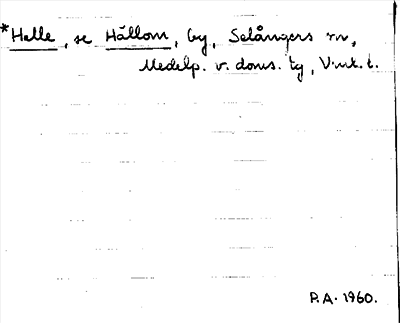 *Helle, se Hällom, by, Selångers sn,
Medelp. v. doms. tg, Vnk. t.
P.A. 1960.